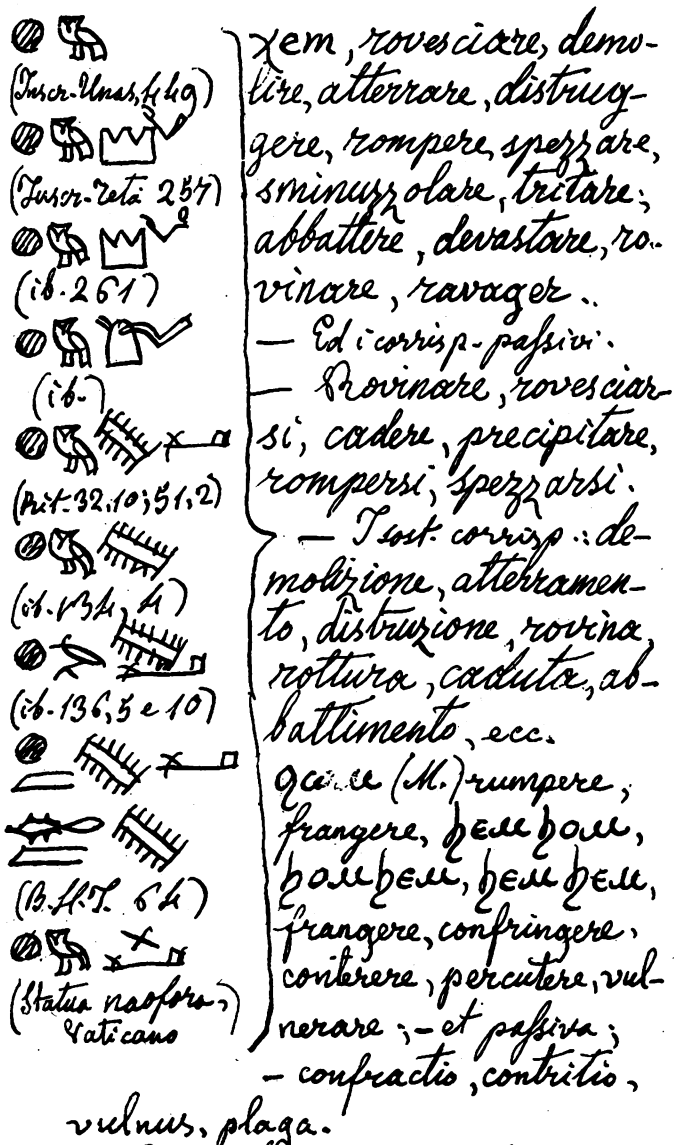 𓐍𓅓
(Inscr. Unas, 449)
(Inscr. Tetà 257)
(ib. 261)
(ib.)
(Rit. 32,10; 51,2)
(ib. 134, 4)
(ib. 136,5 e 10)
(B.H.I. 64)
(Statua naofora,
Vaticano
χem, rovesciare, demo-
lire, atterrare, distrug-
gere, rompere, spezzare,
sminuzzolare, tritare;
abbattere, devastare, ro-
vinare, ravager..
— Ed i corrisp. passivi.
— Rovinare, rovesciar-
si, cadere, precipitare,
rompersi, spezzarsi.
— I sost. corrisp.: de-
molizione, atterramen-
to, distruzione, rovina,
rottura, caduta, ab-
battimento, ecc.
(M.) rumpere,
frangere, ϧⲉⲙϧⲟⲙ,
ϧⲟⲙϧⲉⲙ, ϧⲉⲙϧⲉⲙ,
frangere, confringere,
conterere, percutere, vul-
nerare; — et passiva;
— confractio, contritio,
vulnus, plaga.